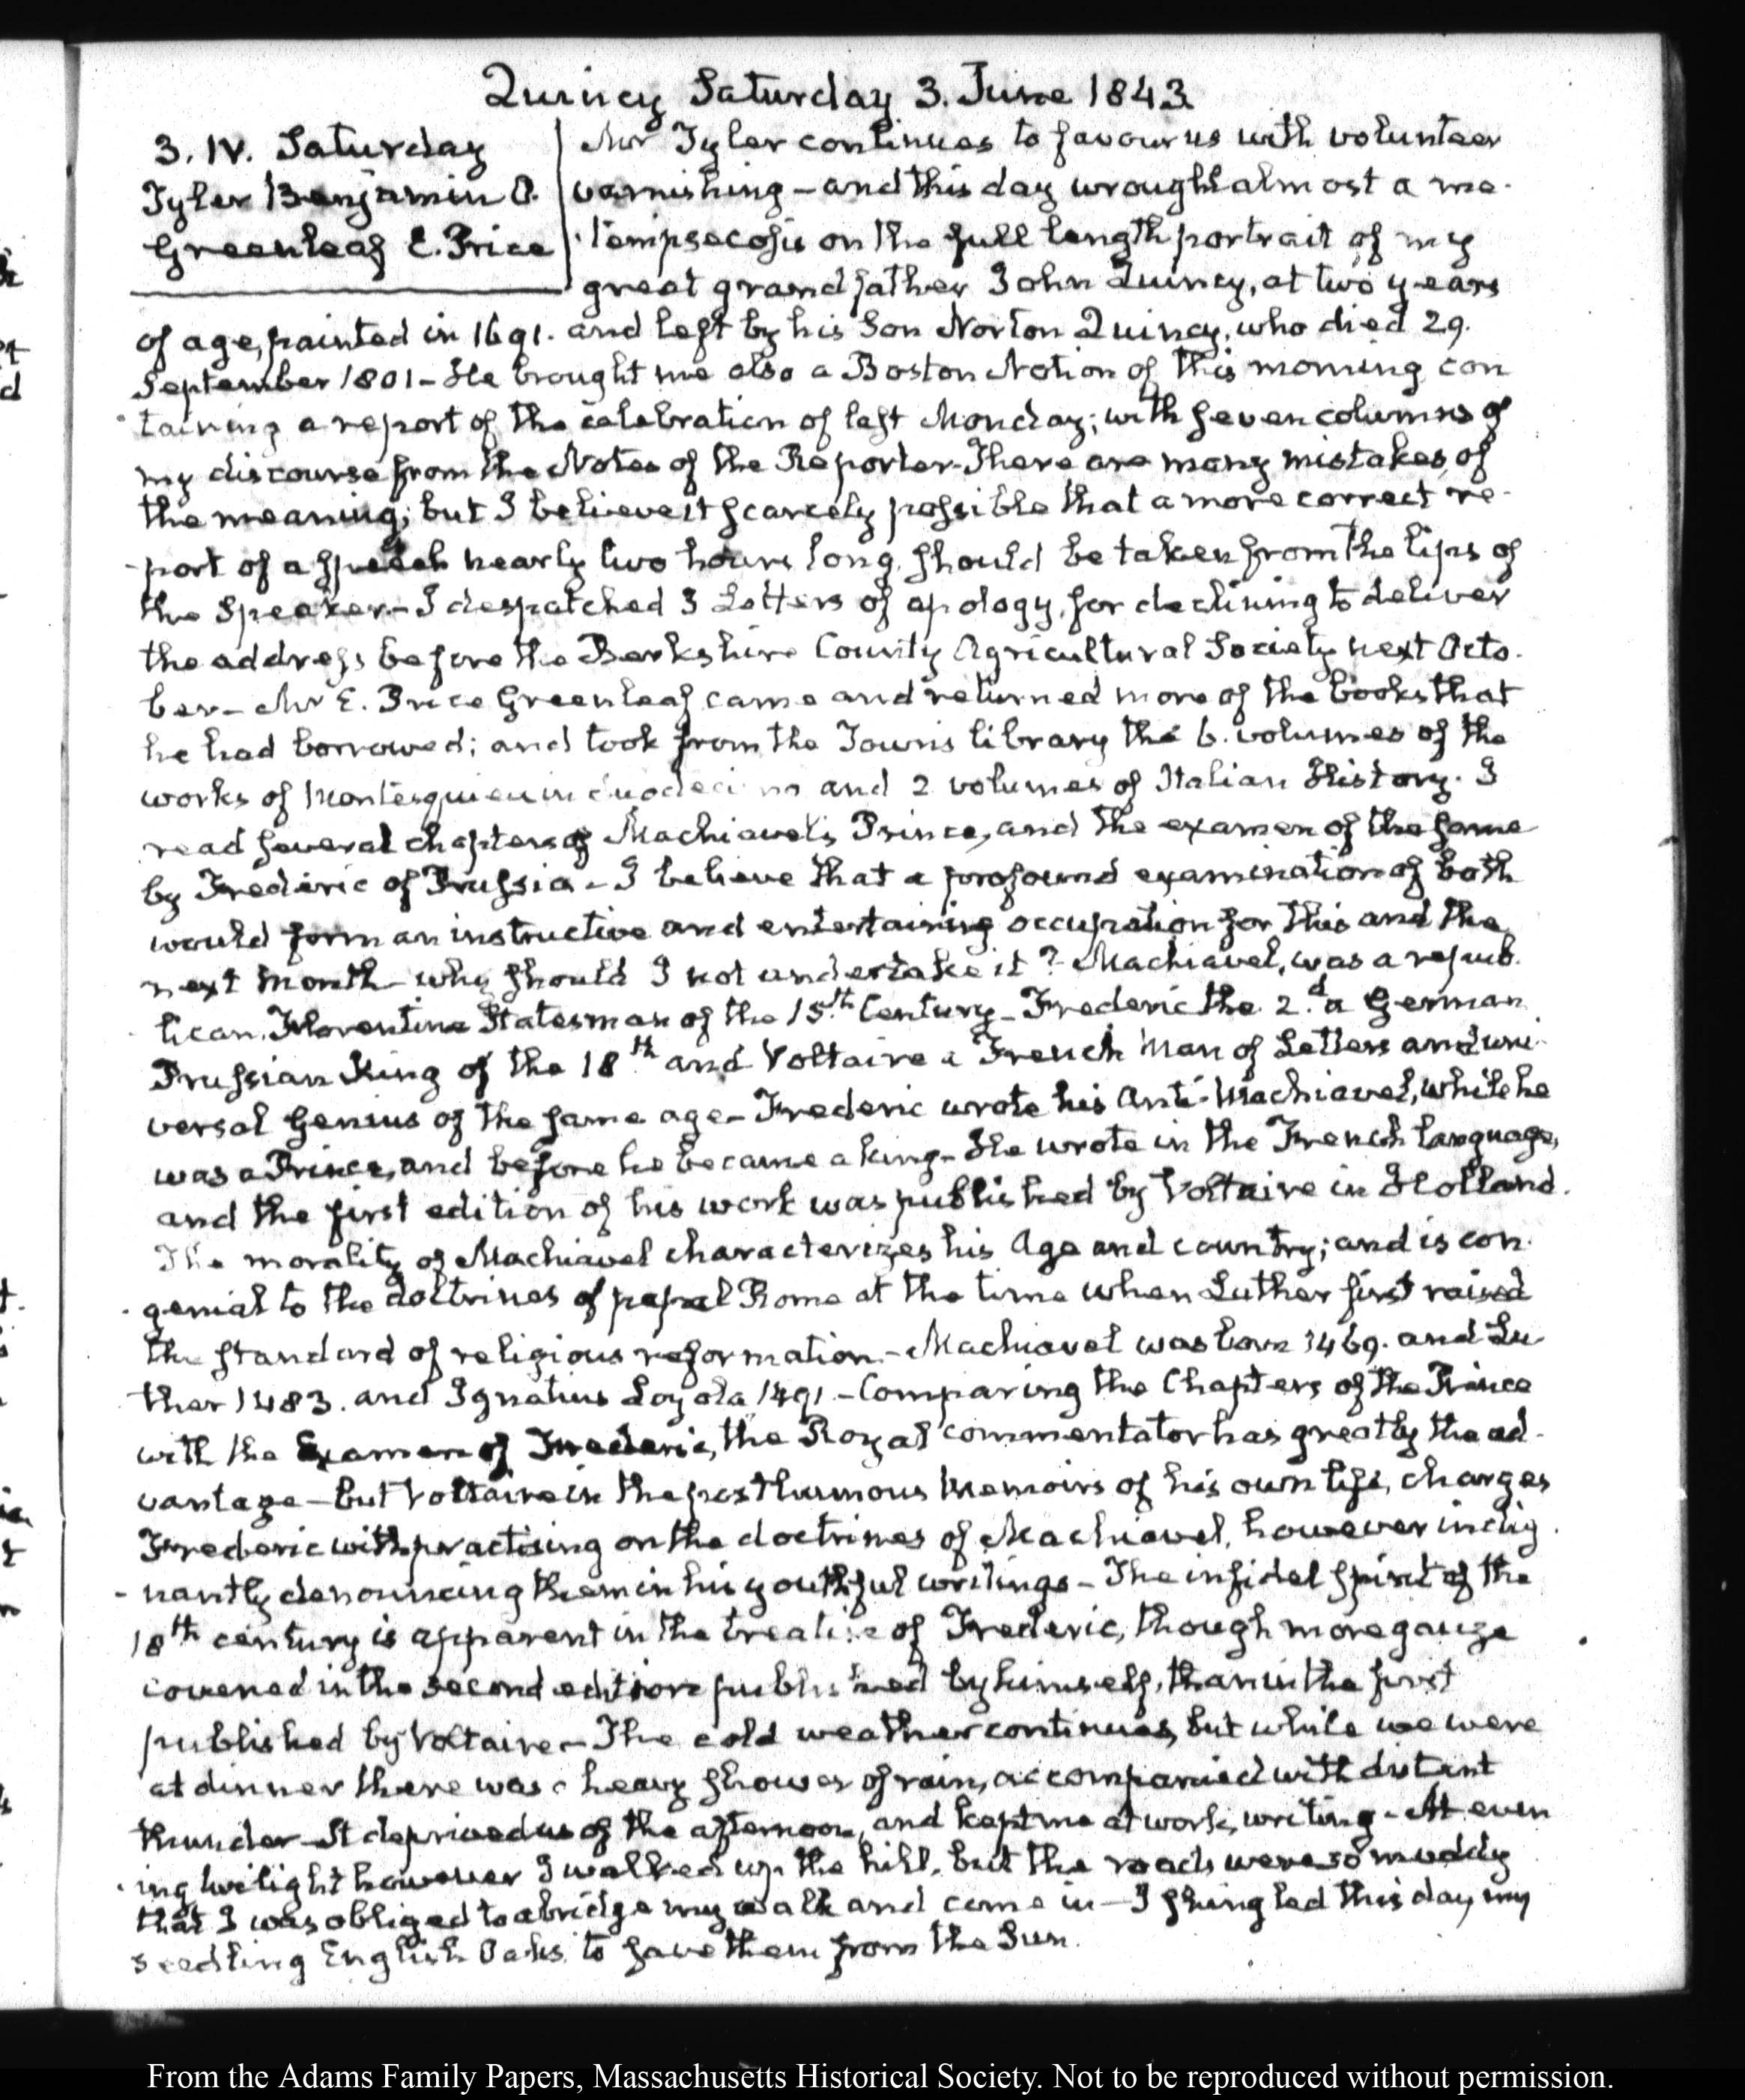 Quincy Saturday 3. June 1843
3. IV. Saturday
Tyler Benjamin O.
Greenleaf E. Price
Mr Tyler continues to favour us with volunteer
varnishing – and this day wrought almost a me-
tempsecosis on the full length portrait of my
great grandfather John Quincy, at two years
of age, painted in 1691. and left by his Son Norton Quincy, who died 29.
September 1801 – He brought me also a Boston Notion of this morning con
taining a report of the celebration of last Monday; with seven columns of
my discourse from the Notes of the Reporter – There are many mistakes, of
the meaning; but I believe it scarcely possible that a more correct re-
-port of a speech nearly two hours long, should be taken from the lips of
the Speaker – I despatched 3 Letters of apology, for declining to deliver
the address before the Berkshire County Agricultural Society next Octo-
ber – Mr E. Price Greenleaf came and returned more of the books that
he had borrowed; and took from the Towns library the 6. volumes of the
works of Montesquieu in duodecimo and 2 volumes of Italian History. I
read several chapters of Machiavel's Prince, and the examen of the same
by Frederic of Prussia – I believe that a profound examination of both
would form an instructive and entertaining occupation for this and the
next month – why should I not undertake it? Machiavel, was a repub-
lican, Florentine Statesman of the 15.th Century – Frederic the 2.d a German
Prussian King of the 18.th and Voltaire a French Man of Letters and uni-
versal Genius of the same age – Frederic wrote his Anti-Machiavel, while he
was a Prince, and before he became a king – He wrote in the French language,
and the first edition of his work was published by Voltaire in Holland.
The morality of Machiavel characterizes his Age and country; and is con-
-genial to the doctrines of papal Rome at the time when Luther first raised
the standard of religious reformation. – Machiavel was born 1469. and Lu-
ther 1483. and Ignatius Loyola 1491. – Comparing the Chapters of the Prince
with the Examen of Frederic, the Royal commentator has greatly the ad-
vantage – but Voltaire in the posthumous Memoirs of his own life, charges
Frederic with practising on the doctrines of Machiavel, however indig
-nantly denouncing them in his youthful writings – The infidel spirit of the
18th century is apparent in the treatise of Frederic, though more gauze
covered in the second edition published by himself, than in the first
published by Voltaire – The cold weather continues, but while we were
at dinner there was a heavy shower of rain, accompanied with distant
thunder – It deprived us of the afternoon, and kept me at work, writing – At even
-ing twilight however I walked up the hill, but the roads were so muddy
that I was obliged to abridge my walk and come in – I shingled this day, my
seedling English Oaks, to save them from the Sun.
From the Adams Family Papers, Massachusetts Historical Society. Not to be reproduced without permission.